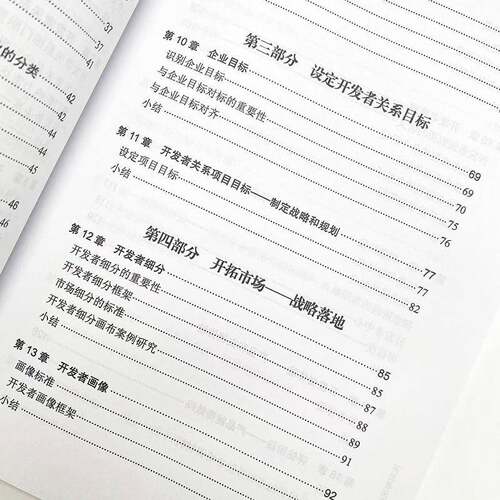 37
37
41
的分类
42
42
44
44
45
46
46
第三部分 设定开发者关系目标
第10章 企业目标 69
识别企业目标 69
与企业目标对标的重要性 70
与企业目标对齐 75
小结 76
第11章 开发者关系项目目标——制定战略和规划 77
设定项目目标 77
小结 82
第四部分 开拓市场——战略落地
第12章 开发者细分 85
开发者细分的重要性 85
开发者细分框架 87
市场细分的标准 88
开发者细分画布案例研究 89
小结 91
第13章 开发者画像 92
画像标准
开发者画像框架
小结